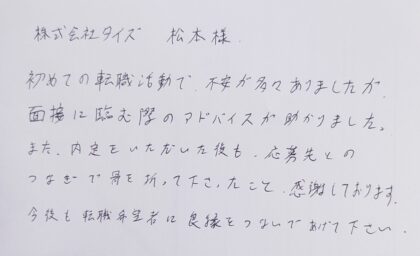 株式会社タイズ 松本様
初めての転職活動で、不安が多々ありましたが、
面接に臨む際のアドバイスが助かりました。
また、内定をいただいた後も、応募先との
つなぎで骨を折って下さったこと、感謝しております。
今後も転職希望者に良縁をつないであげて下さい。